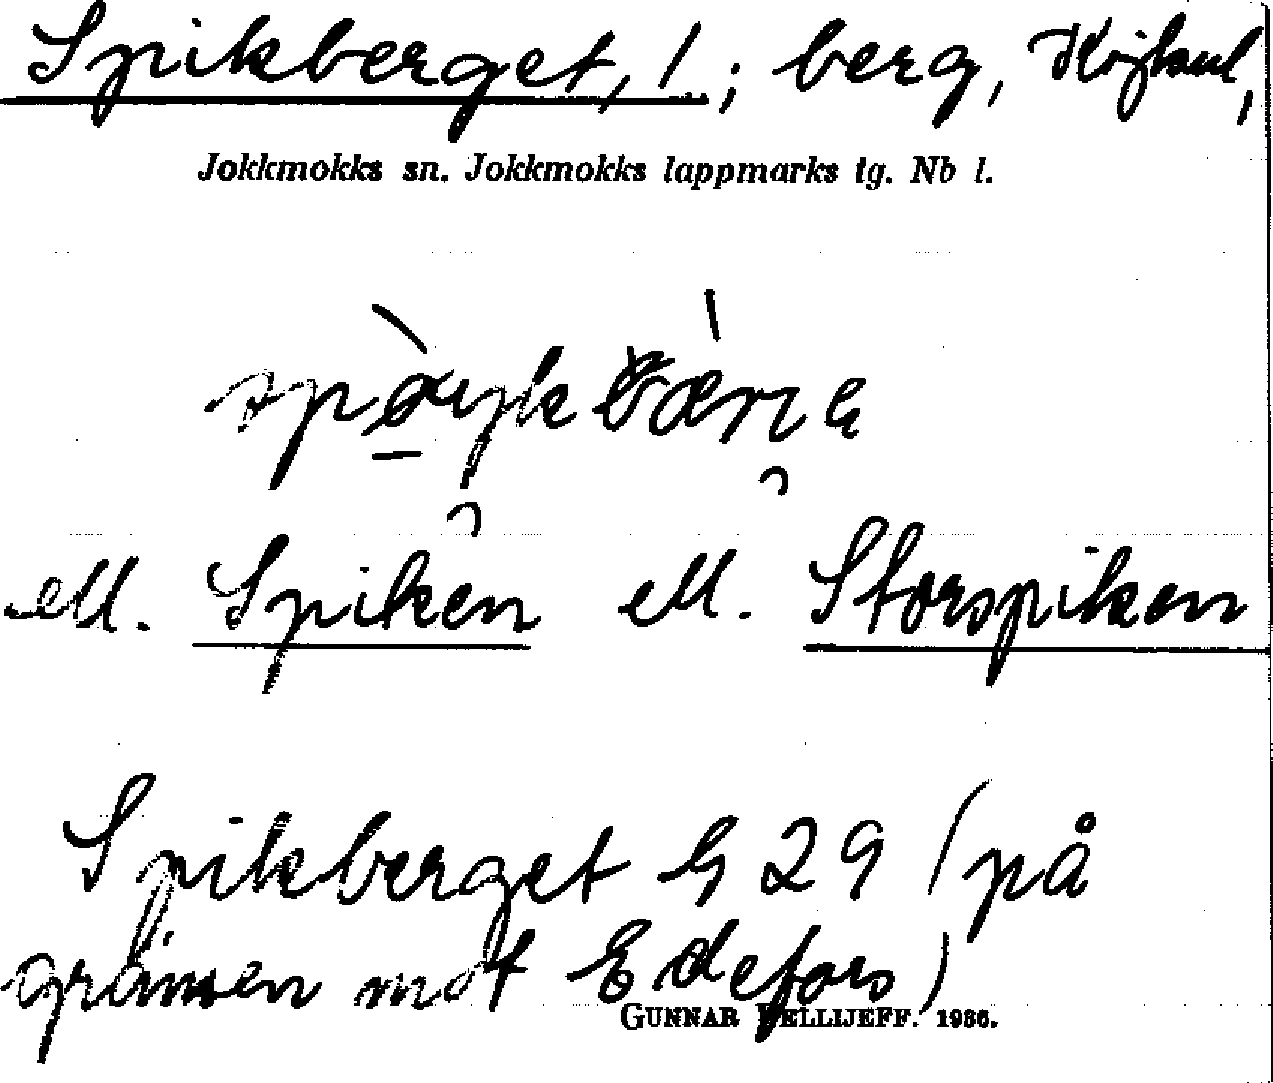 Spikberget, 1; berg,
Jokkmokks sn. Jokkmokks lappmarks tg. Nb l.
ell. Spiken ell. Storspiken
Spikberget G 29 (på
gränsen mot Edefors)
GUNNAR PELLIJEFF. 1936.